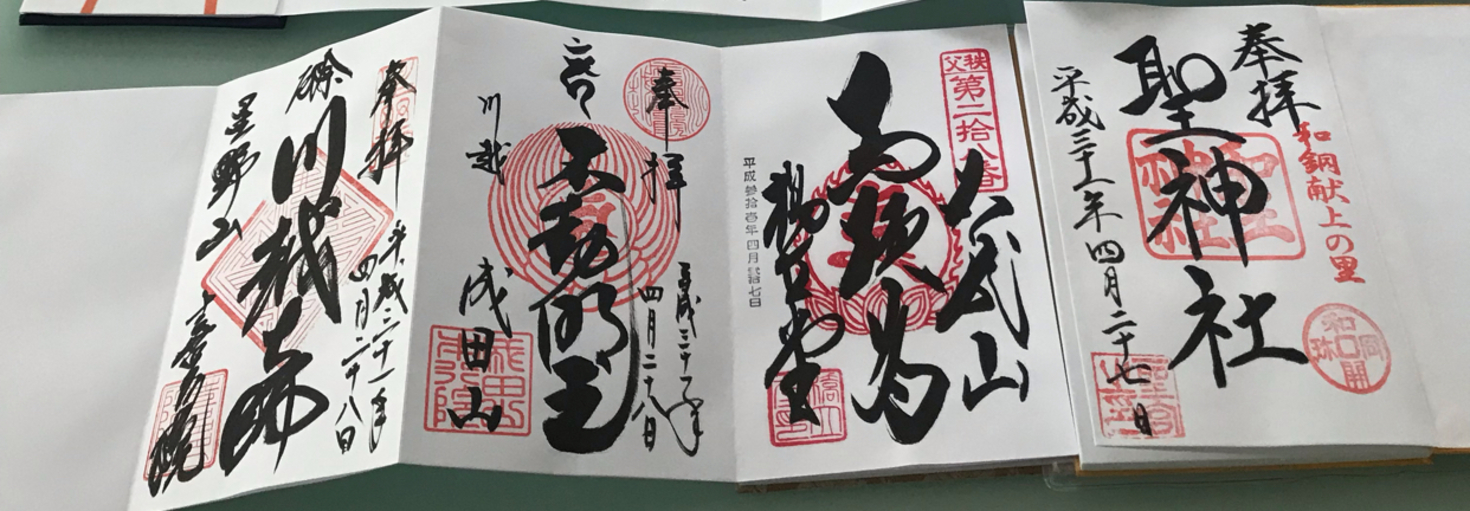 奉拝
和銅献上の里
聖神社
平成三十一年四月二十七日
秩父
第二拾八番
橋立堂
平成参拾壱年四月弐拾七日
奉拝
平成三十一年
四月二十八日
不動明王
川越
成田山
奉拝
平成三十一年
四月二十八日
厄除
川越大師
星野山
喜多院